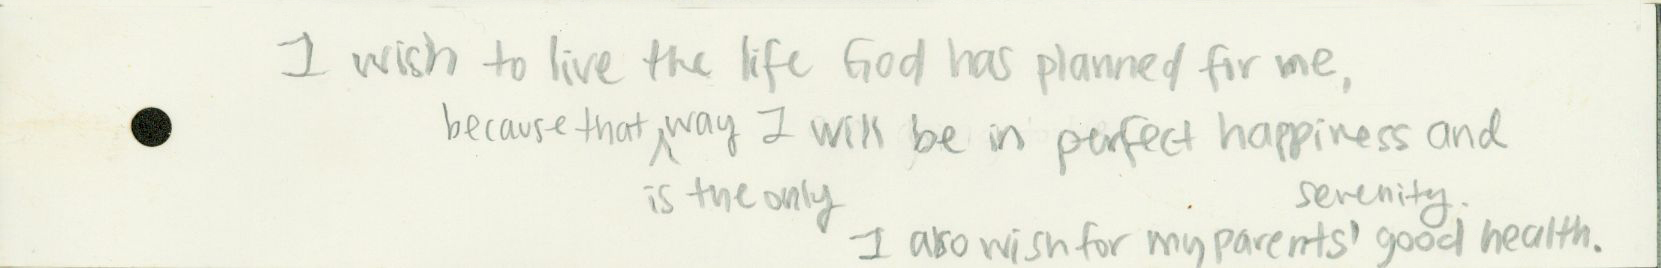 I wish to live the life God has planned for me,
because that ^ way I will be in perfect happiness and
is the only
serenity.
I also wish for my parents' good health.